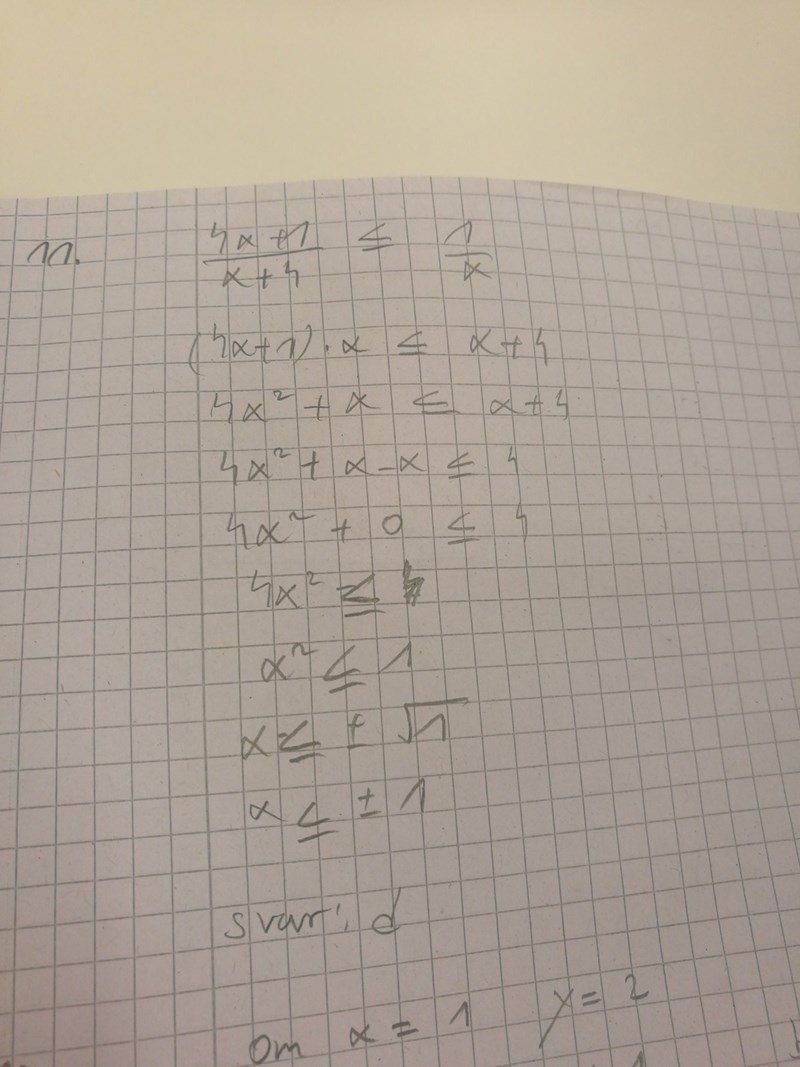 11. (4x+1)/(x+4) ≤ 1/x
(4x+1)·x ≤ x+4
4x² + x ≤ x+4
4x² + x-x ≤ 4
4x² + 0 ≤ 4
4x² ≤ 4
x² ≤ 1
x ≤ ± √1
x ≤ ± 1
svar: d
om x = 1 y = 2